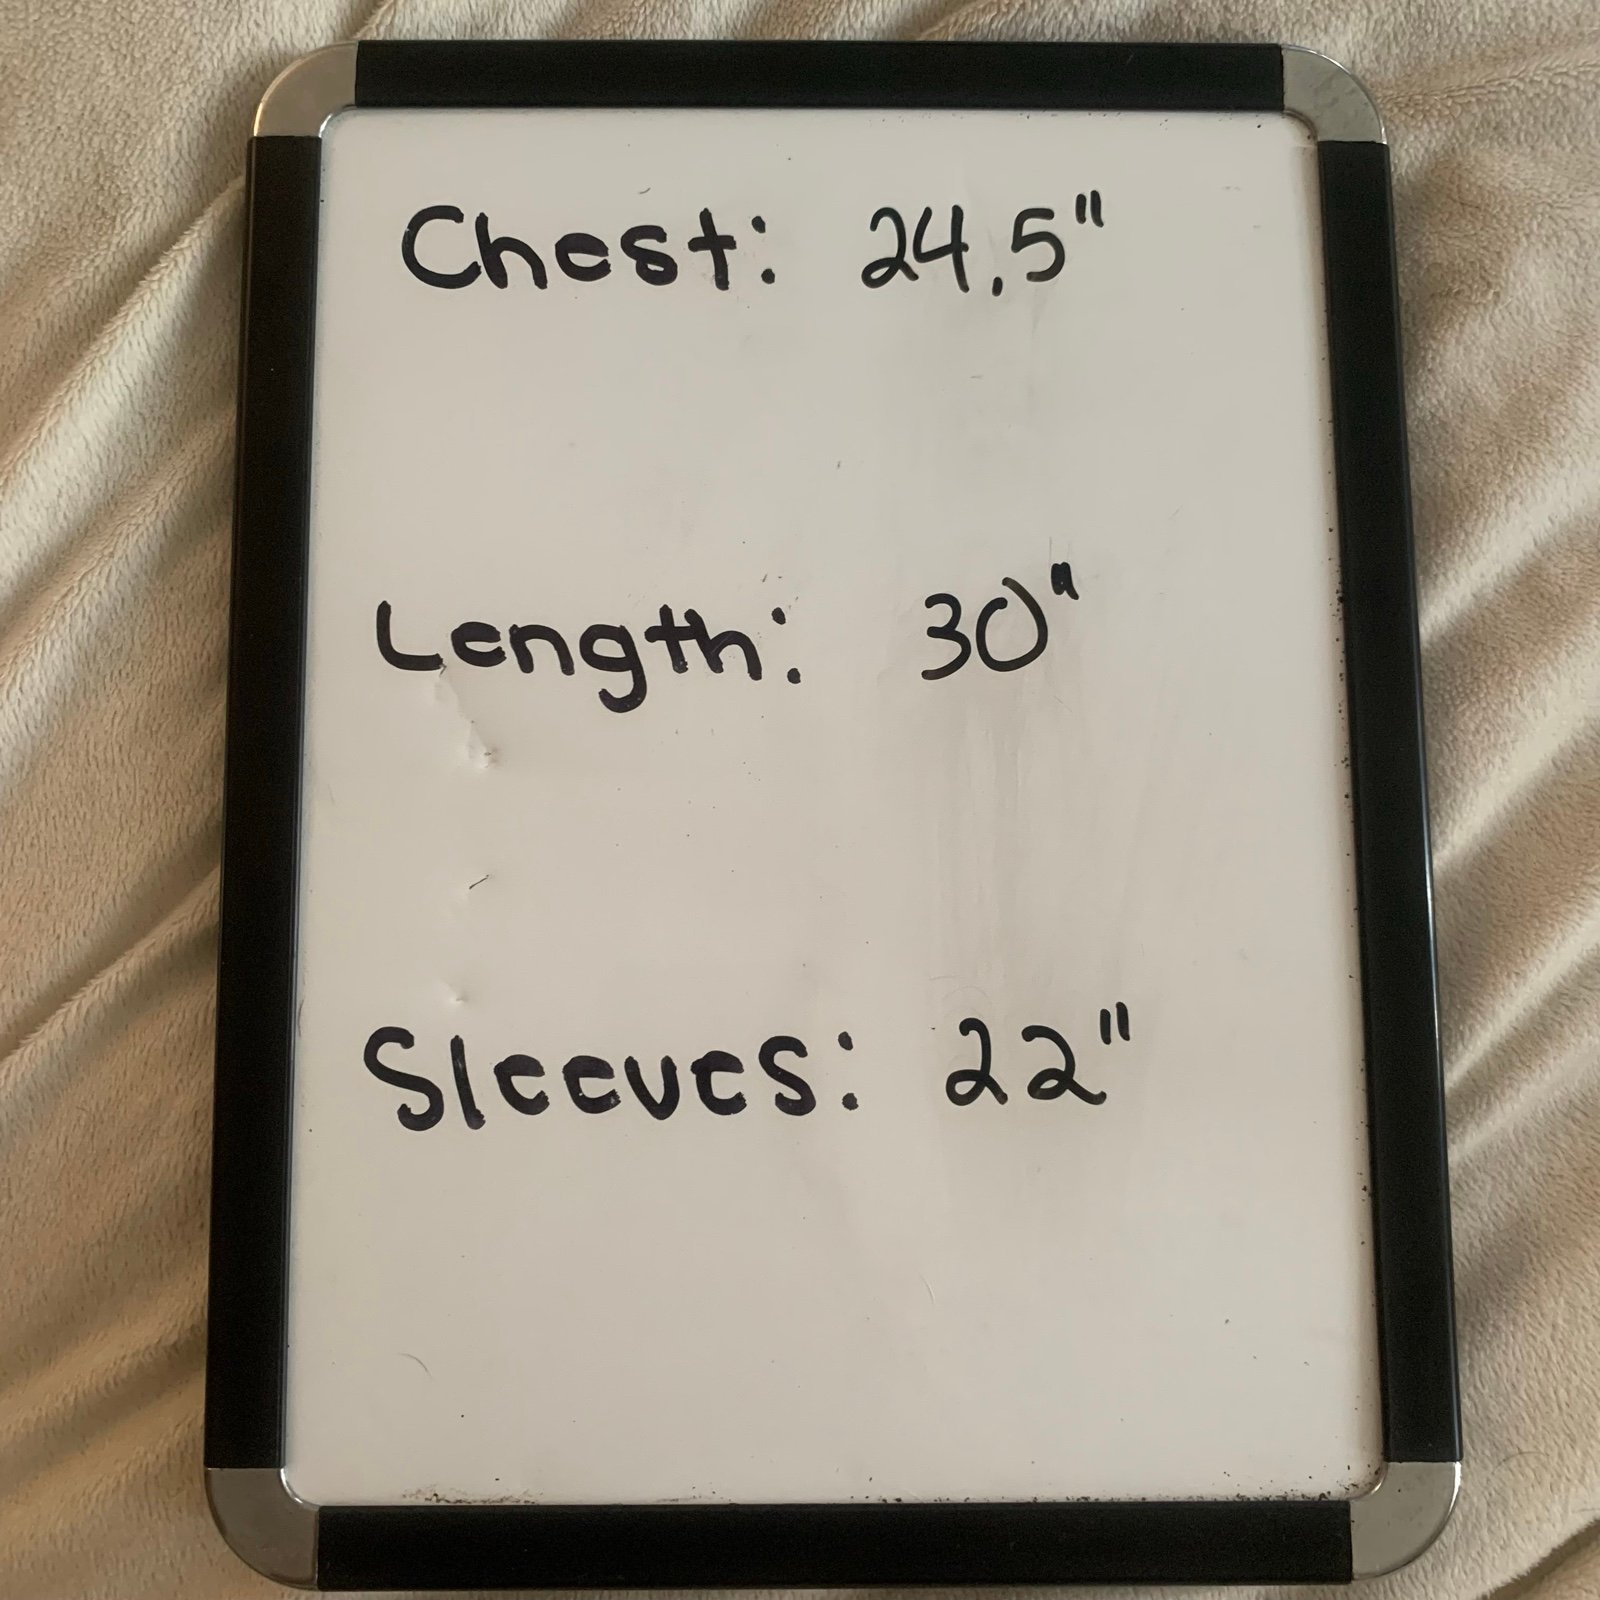 Chest: 24.5"
Length: 30"
Sleeves: 22"